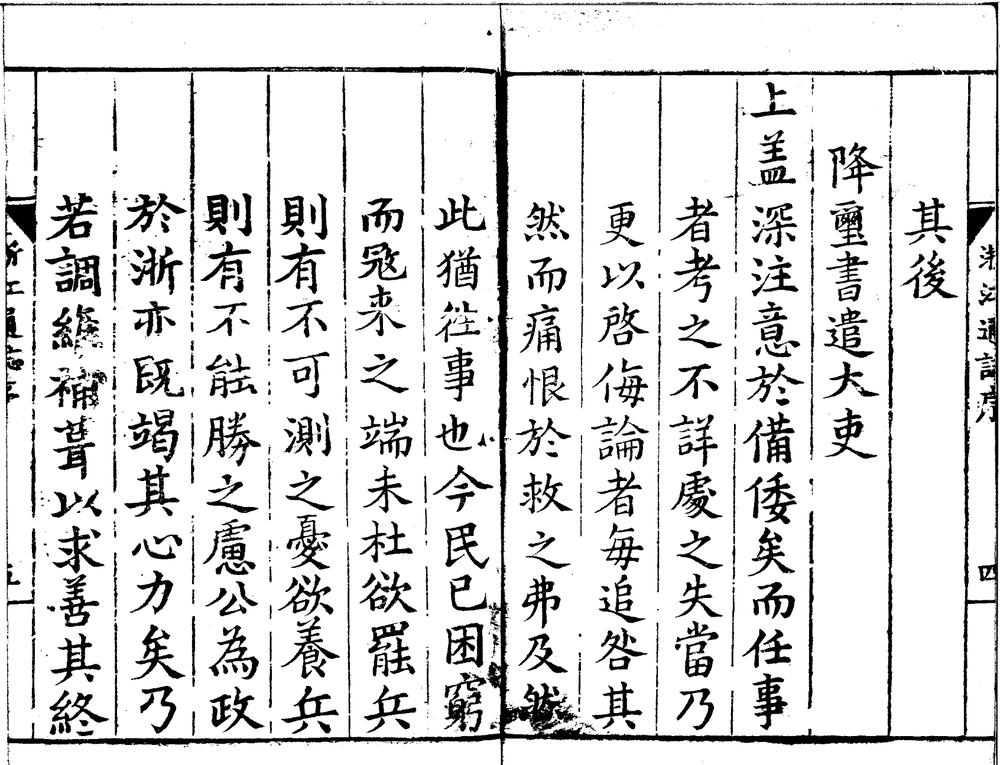 浙江通誌序
四
其後
降璽書遣大吏
上盖深注意於備倭矣而任事
者考之不詳處之失當乃
更以啓侮論者每追咎其
然而痛恨於救之弗及然
此猶徃事也今民已困窮
而冦来之端未杜欲罷兵
則有不可測之憂欲養兵
則有不能勝之慮公為政
於浙亦既竭其心力矣乃
若調維補葺以求善其終
浙江通誌序
五